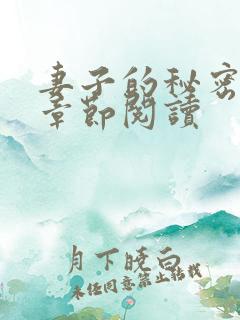 妻子的秘密
章節閱讀
月下晚白
未经同意禁止转载